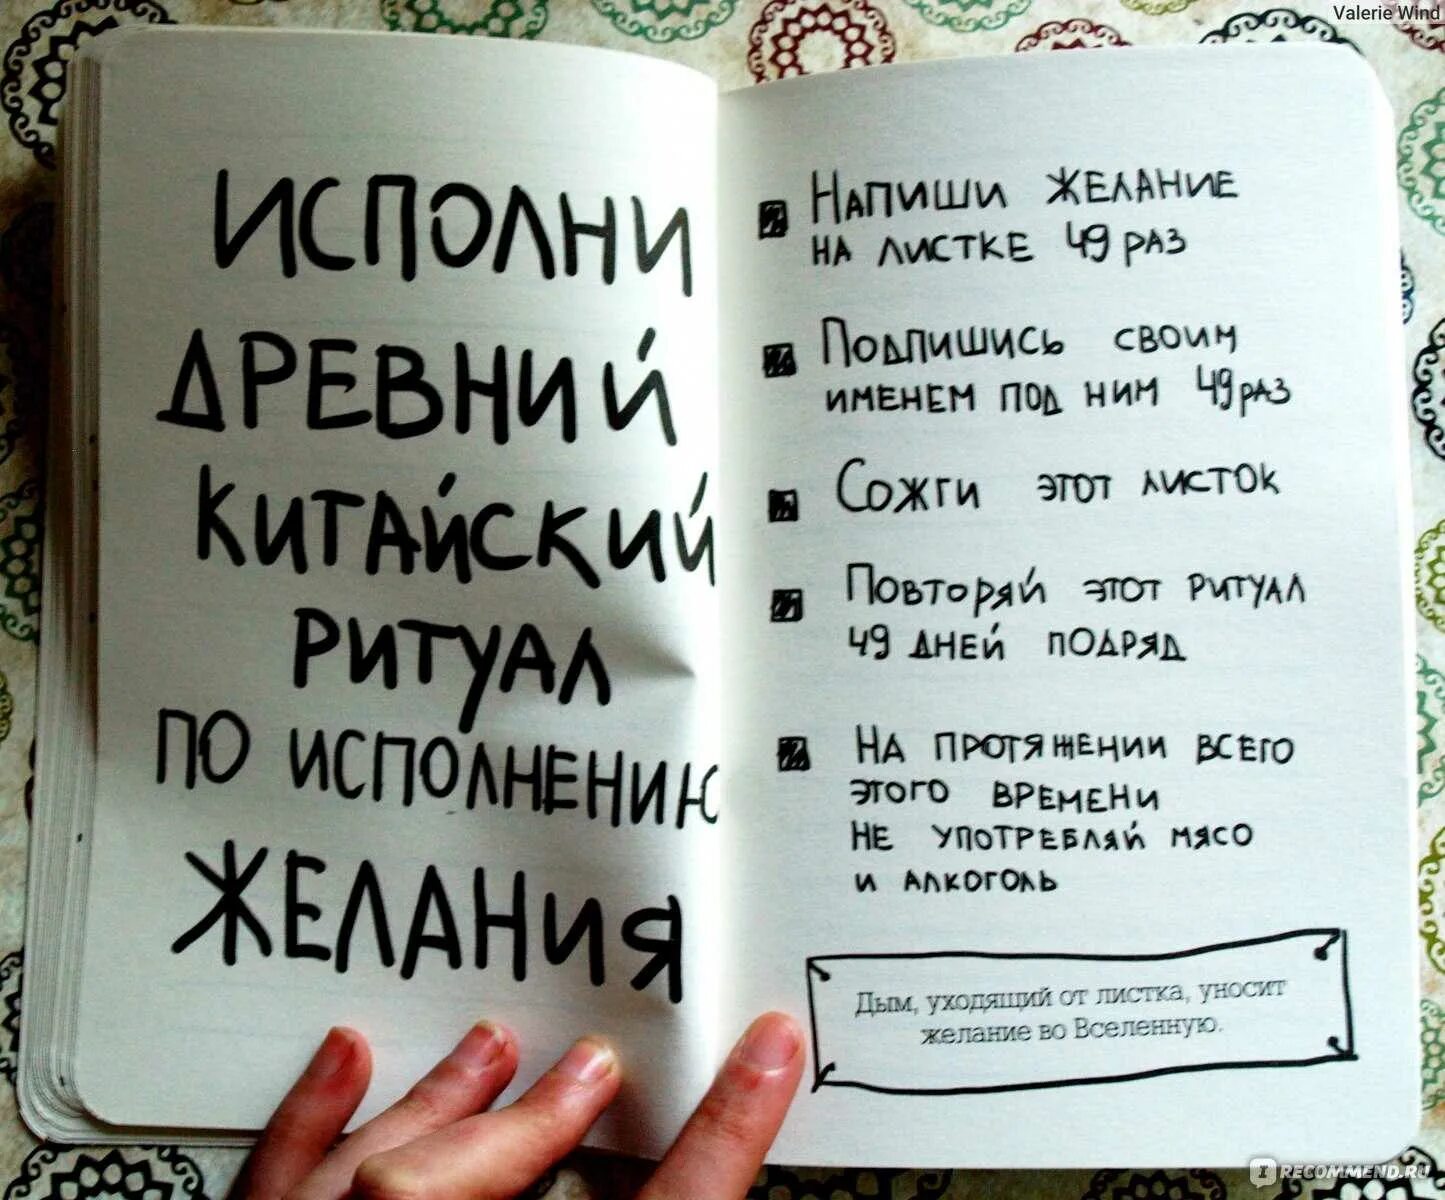 Valerie Wind
ИСПОЛНИ
ДРЕВНИЙ
КИТАЙСКИЙ
РИТУАЛ
ПО ИСПОЛНЕНИЮ
ЖЕЛАНИЯ
НАПИШИ ЖЕЛАНИЕ
НА ЛИСТКЕ 49 РАЗ
ПОДПИШИСЬ СВОИМ
ИМЕНЕМ ПОД НИМ 49 РАЗ
СОЖГИ ЭТОТ ЛИСТОК
ПОВТОРЯЙ ЭТОТ РИТУАЛ
49 ДНЕЙ ПОДРЯД
НА ПРОТЯЖЕНИИ ВСЕГО
ЭТОГО ВРЕМЕНИ
НЕ УПОТРЕБЛЯЙ МЯСО
И АЛКОГОЛЬ
Дым, уходящий от листка, уносит
желание во Вселенную.
IRECOMMEND.RU